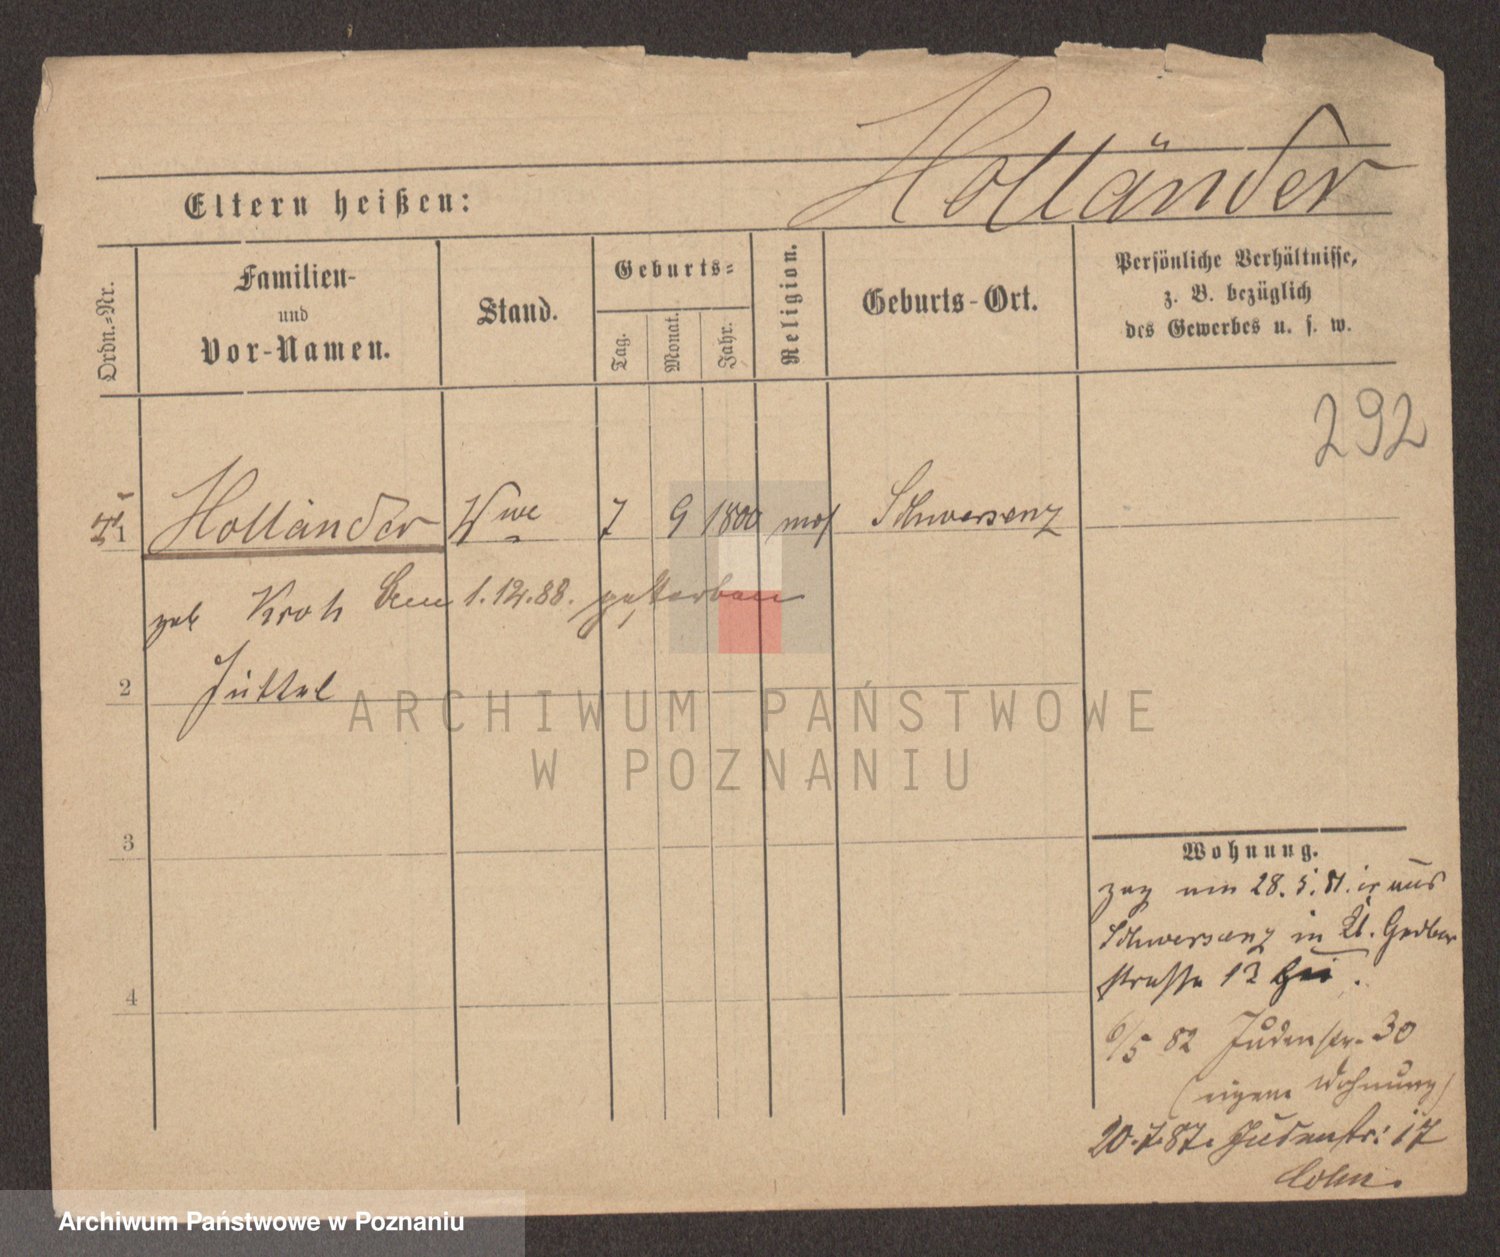 Holländer
Eltern heißen:
Ordn.-Nr.
Familien-
und
Vor-Namen.
Stand.
Geburts-
Tag.
Monat.
Jahr.
Religion.
Geburts-Ort.
Persönliche Verhältnisse,
z. B. bezüglich
des Gewerbes u. s. w.
292
1 Holländer Wwe 7 9 1800 mos Schwersenz
geb Kroh den 1.12.88. gestorben
2 Jüttel
3
4
Wohnung.
zog am 28. 5. 81. aus
Schwersenz in Kl. Gerber
strasse 12
6/5 82 Judenstr. 30
(eigene Wohnung)
20.7.87. Judenstr: 17
Cohn.
ARCHIWUM PAŃSTWOWE
W POZNANIU
Archiwum Państwowe w Poznaniu